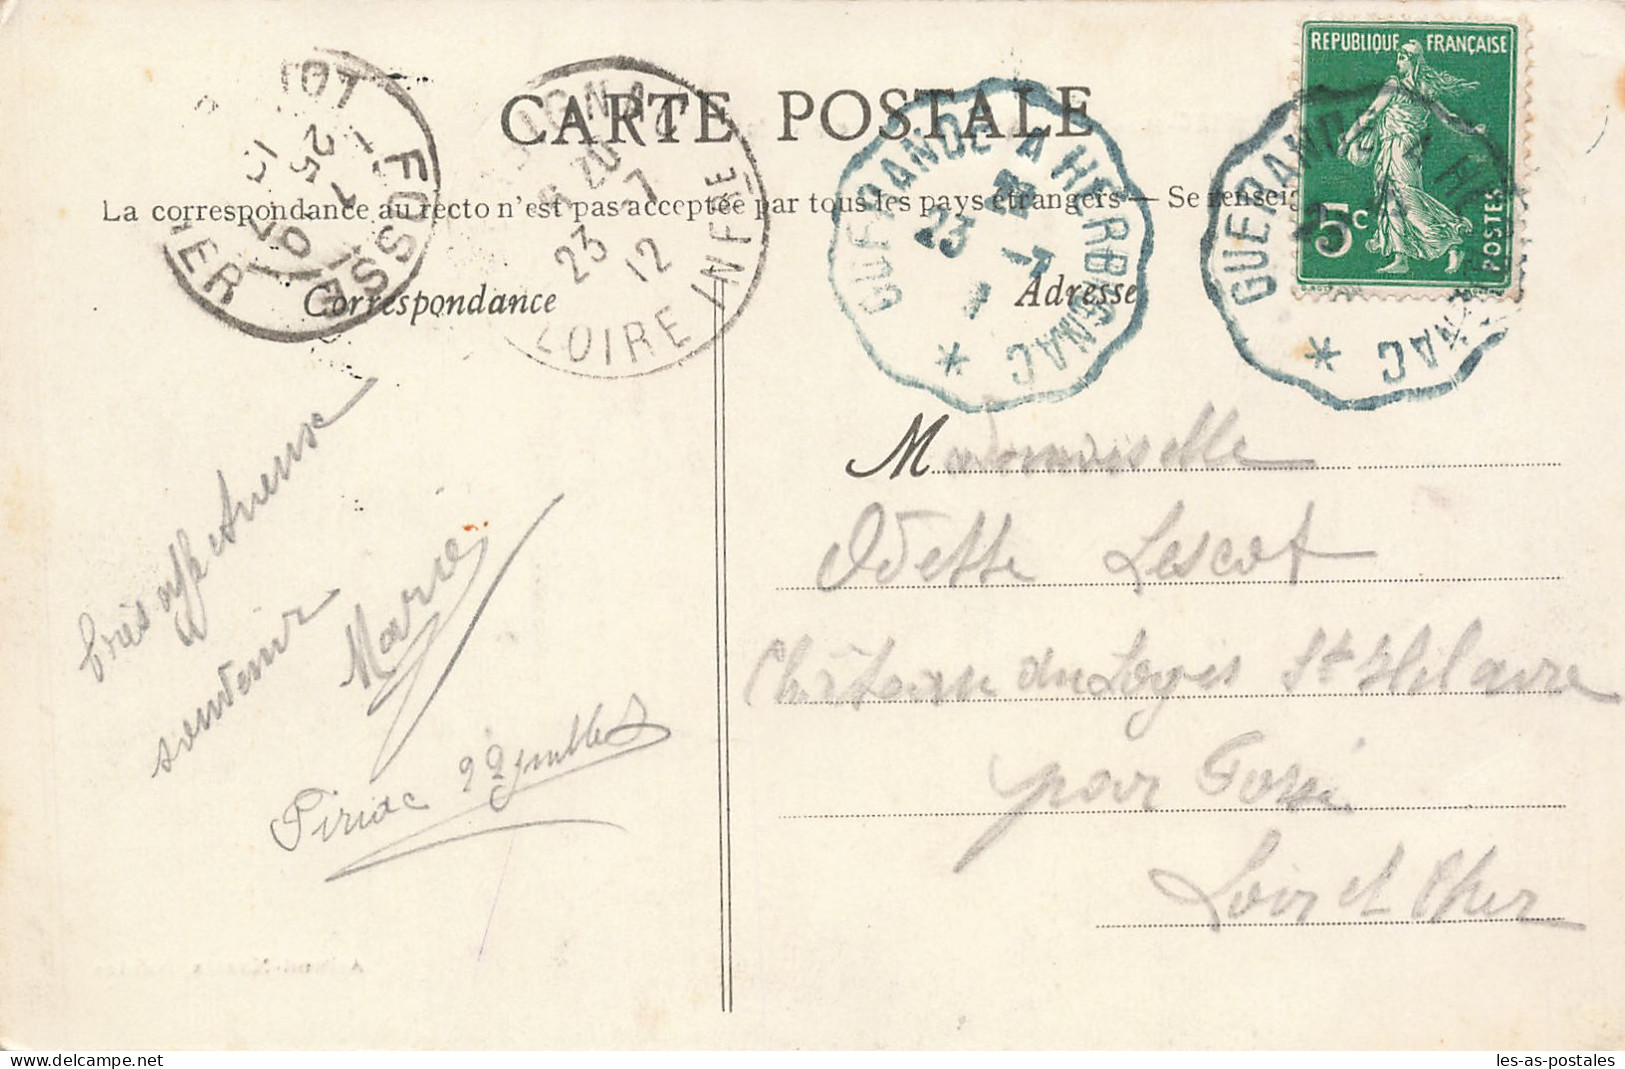 CARTE POSTALE
La correspondance au recto n'est pas acceptée par tous les pays étrangers — Se renseig
Correspondance
Adresse
REPUBLIQUE FRANÇAISE
5c
POSTES
GUERANDE A HERBIGNAC
23 -7
GUERANDE A HE NAC
20
23 -7
12
LOIRE INFRE
FOSSE
LOI
CHER
25 -7
très affectueuse
souvenir
Marie
Piriac 22 juillet
Mademoiselle
Odette Lescot
Château du Logis St Hilaire
par Fossé
Loir et Cher
les-as-postales